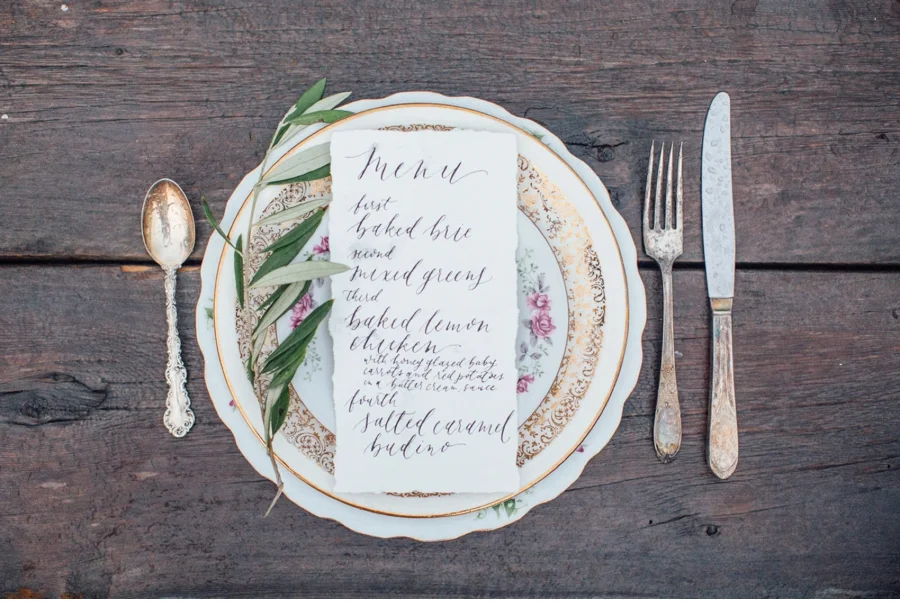 Menu
first
baked brie
second
mixed greens
third
baked lemon
chicken
with honey glazed baby
carrots and red potatoes
in a butter cream sauce
fourth
salted caramel
budino